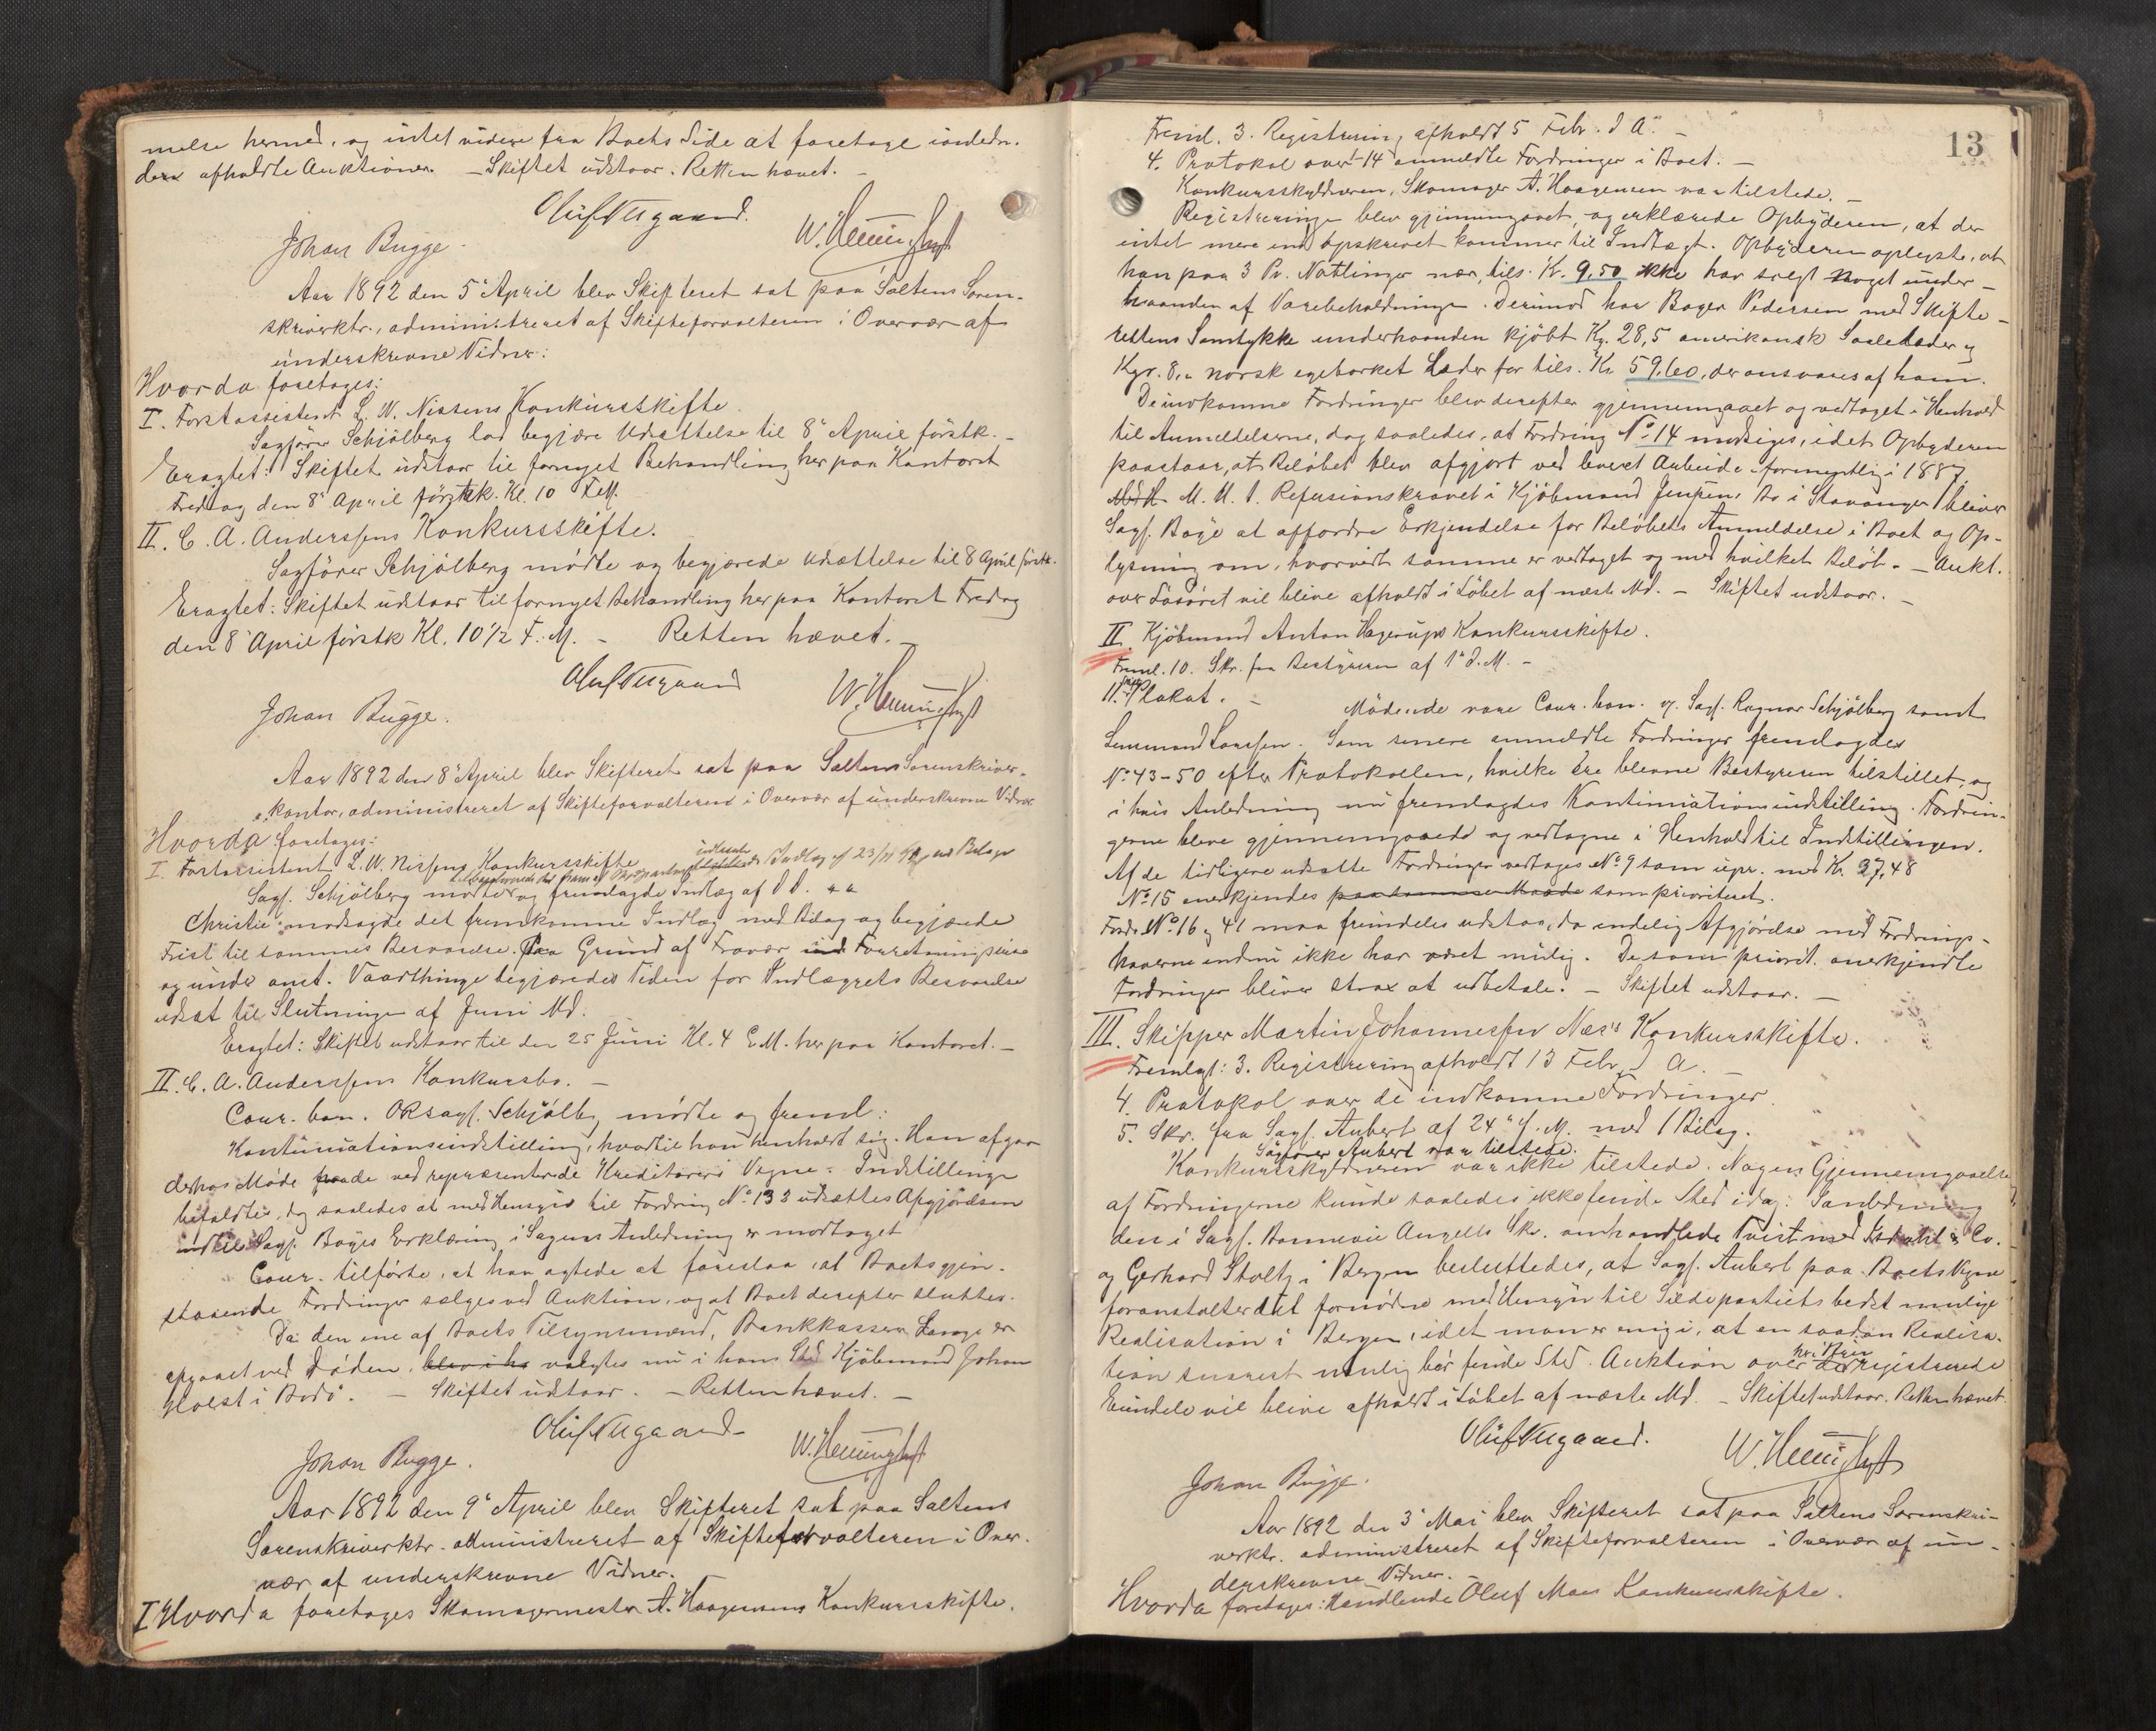 melse hermed, og intet videre fra Boets Side at foretage i anledn.
dera afholdte Auktioner. – Skiftet udstaar. Retten hævet. –
Oluf Aagaard.
Johan Bugge. W. Hemingholt
Aar 1892 den 5' April blev Skifteret sat paa Saltens Soren-
skriverktr., administreret af Skifteforvalteren i Overvær af
underskrevne Vidner:
Hvorda foretages:
I. Forstassistent L. W. Nissens Konkursskifte
Sagfører Schjølberg lod begjære Udsættelse til 8' April førstk. –
Eragtet: Skiftet udstaar til fornyet Behandling her paa Kontoret
Fredag den 8' April førstk. Kl. 10 F.M.
II. C. A. Anderssens Konkursskifte.
Sagfører Schjølberg mødte og begjærede Udsættelse til 8 April førstk.
Eragtet: Skiftet udstaar til fornyet Behandling her paa Kontoret Fredag
den 8' April førstk Kl. 10 1/2 F.M. – Retten hævet. –
Oluf Aagaard
Johan Bugge. W. Hemingholt
Aar 1892 den 8' April blev Skifteret sat paa Saltens Sorenskriver-
kontor, administreret af Skifteforvalteren i Overvær af underskrevne Vidner
Hvorda foretages:
I. Forstassistent L. W. Nissens Konkursskifte
Indlæg af 23/11 med Bilage
Sagf. Schjølberg mødte og fremlagde Indlæg af D.D.
Christie modsagde det fremkomne Indlæg med Bilag og begjærede
Frist til sammes Besvarelse. Paa Grund af Fravær ind Forretningsreise
og unde anst. Vaarthinge begjæredes Tiden for Indlægets Besvarelse
udsat til Slutningen af Juni Md.
Eragtet: Skiftet udstaar til den 25 Juni Kl. 4 E.M. her paa Kontoret. –
II. C. A. Anderssens Konkursbo. –
Cour. bon. ORsagf. Schjølbg mødte og freml:
Kontinuationsindstilling, hvortil han henholdt sig. Han afgav
derhos Møde for de ved repræsenterede Kreditorers Vegne. Indstillingen
bifaldtes, dog saaledes at med Hensyn til Fordring No. 133 udsættes Afgjørelsen
indtil Sagf. Boyes Erklæring i Sagens Anledning er modtaget
Cour. tilførte, at han agtede at foreslaa, at Boets gjen-
staaende Fordringer sælges ved Auktion, og at Boet derefter sluttes.
Da den ene af Boets Tilsynsmænd, Bankkasserer Lange er
afgaaet ved Døden, blev i ha valgtes nu i hans Sted Kjøbmand Johan
Holst i Bodø. – Skiftet udstaar. – Retten hævet. –
Oluf Aagaard
Johan Bugge. W. Hemingholt
Aar 1892 den 9' April blev Skifteret sat paa Saltens
Sorenskriverktr. administreret af Skifteforvalteren i Over-
vær af underskrevne Vidner.
I Hvorda foretages Skomagermester A. Haagensens Konkursskifte.
13
Freml. 3. Registrering afholdt 5 Febr. d A. –
4. Protokol over 14 anmeldte Fordringer i Boet. –
Konkursskyldneren, Skomager A. Haagensen var tilstede. –
Registreringen blev gjennemgaaet, og erklærede Opbyderen, at der
intet mere end opskrevet kommer til Indtægt. Opbyderen oplyste, at
han paa 3 Pr. Nattlinger nær, tils. Kr. 9,50 ikke har solgt noget under-
haanden af Varebeholdningen. Derimod har Bager Pedersen med Skifte-
rettens Samtykke underhaanden kjøbt Kg. 28,5 amerikansk Saalelæder og
Kgr. 8,- norsk egebarket Læder for tils. Kr 59,60, der ansvares af ham.
De indkomne Fordringer blev derefter gjennemgaaet og vedtaget i Henhold
til Anmeldelserne, dog saaledes, at Fordring No. 14 modsiges, idet Opbyderen
paastaar, at Beløbet blev afgjort ved leveret Arbeide – formentlig i 1887
M. H. t. Refusionskravet i Kjøbmand Jensens Bo i Stavanger bliver
Sagf. Boye at affordre Erkjendelse for Beløbets Anmeldelse i Boet og Op-
lysning om, hvorvidt samme er vedtaget og med hvilket Beløb. – Aukt.
over Løsøret vil blive afholdt i Løbet af næste Md. – Skiftet udstaar. –
II. Kjøbmand Anton Hagerups Konkursskifte.
Freml. 10. Skr. fra Bestyreren af 1' d.M. –
11. Plakat. – Mødende vare Cour. bon. og Sagf. Ragnar Schjølberg samt
Lensmand Larssen. Som senere anmeldte Fordringer fremlagdes
No. 43–50 efter Protokollen, hvilke ere blevne Bestyreren tilstillet, og
i hvis Anledning nu fremlagdes Kontinuationsindstilling. Fordrin-
gerne bleve gjennemgaaede og vedtagne i Henhold til Indstillingen.
Af de tidligere udsatte Fordringer vedtages No. 9 som upr. med Kr. 27,48
No. 15 anerkjendes paa samme Maade som prioriteret.
Fordr. No. 16 og 41 maa fremdeles udstaa, da endelig Afgjørelse med Fordrings-
haverne endnu ikke har været mulig. De som priorit. anerkjendte
Fordringer bliver strax at udbetale. – Skiftet udstaar. –
III. Skipper Martin Johannessen Næs's Konkursskifte.
Fremlagt: 3. Registrering afholdt 13 Febr. d A. –
4. Protokol over de indkomne Fordringer.
5. Skr. fra Sagf. Aubert af 24' f.M. med 1 Bilag.
Sagfører Aubert var tilstede.
Konkursskyldneren var ikke tilstede. Nogen Gjennemgaaelse
af Fordringerne kunde saaledes ikke finde Sted idag: I anledning
den i Sagf. Bonnevie Angells Skr. omhandlede Tvist med & Co.
og Gerhard Stoltz i Bergen besluttedes, at Sagf. Aubert paa Boets Vegne
foranstalter det fornødne med Hensyn til Sildepartiets bedst mulige
Realisation i Bergen, idet man er enig i, at en saadan Realisa-
tion snarest mulig bør finde Sted. Auktion over de registrerede
Eiendele vil blive afholdt i Løbet af næste Md. – Skiftet udstaar. Retten hævet.
Oluf Aagaard.
Johan Bugge. W. Hemingholt
Aar 1892 den 3' Mai blev Skifteret sat paa Saltens Sorenskri-
verktr. administreret af Skifteforvalteren i Overvær af un-
derskrevne Vidner.
Hvorda foretages: Handlende Oluf Moes Konkursskifte.